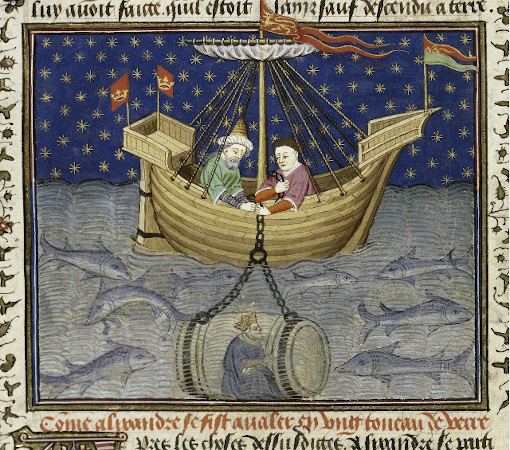 luy auoit faicte. quil estoit sauf descendu a terre
Come alixandre se fist aualer en vng tonneau de verre
Apres les choses dessusdictes Alixandre se parti